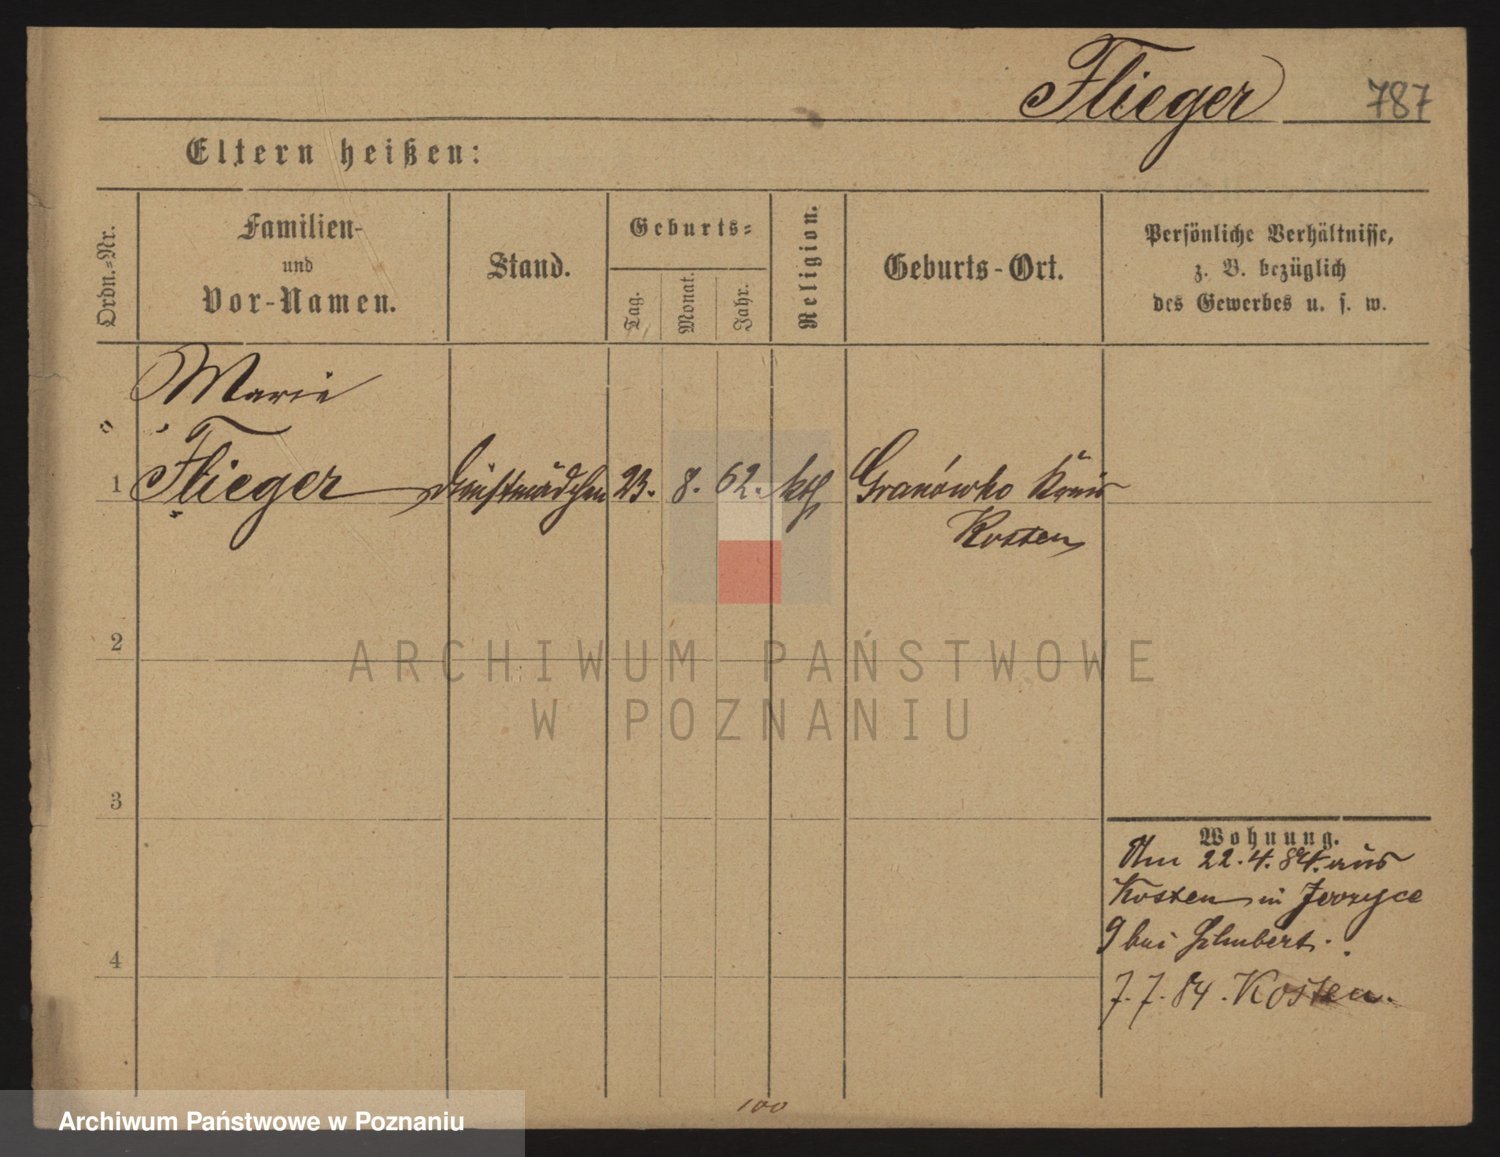 Flieger 787
Eltern heißen:
Ordn.-Nr.
Familien-
und
Vor-Namen.
Stand.
Geburts-
Tag.
Monat.
Jahr.
Religion.
Geburts-Ort.
Persönliche Verhältnisse,
z. B. bezüglich
des Gewerbes u. s. w.
Marie
1 Flieger Dienstmädchen 23. 8. 62. kth Granówko Kreis
Kosten
2
ARCHIWUM PAŃSTWOWE
W POZNANIU
3
Wohnung.
Am 22.4.84. aus
Kosten in
9 bei
4
7.7.84. Kosten.
100
Archiwum Państwowe w Poznaniu